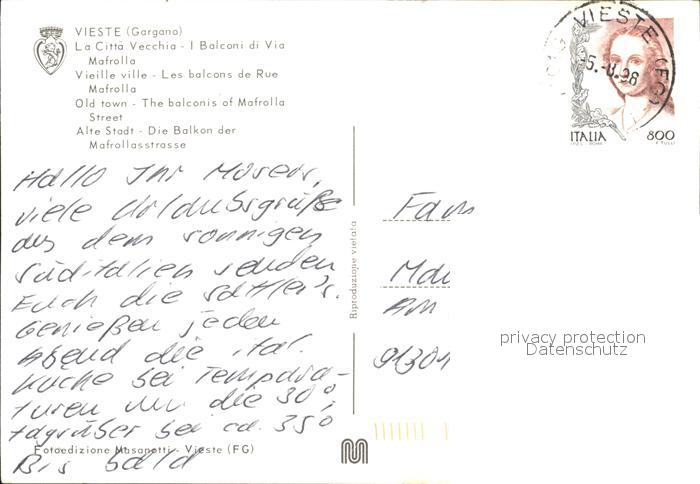 VIESTE (Gargano)
La Città Vecchia - I Balconi di Via
Mafrolla
Vieille ville - Les balcons de Rue
Mafrolla
Old town - The balconis of Mafrolla
Street
Alte Stadt - Die Balkon der
Mafrollasstrasse
Hallo Ihr Mosers,
viele Urlaubsgrüße
aus dem sonnigen
Süditalien senden
Euch die Sattler's.
Genießen jeden
Abend die ital.
Küche bei Tempera-
turen um die 30°,
tagsüber bei ca. 35°
Bis bald
Fotoedizione Masanotti - Vieste (FG)
Riproduzione vietata
VIESTE (FG)
5.-8.98
ITALIA 800
Fam
Am
privacy protection
Datenschutz